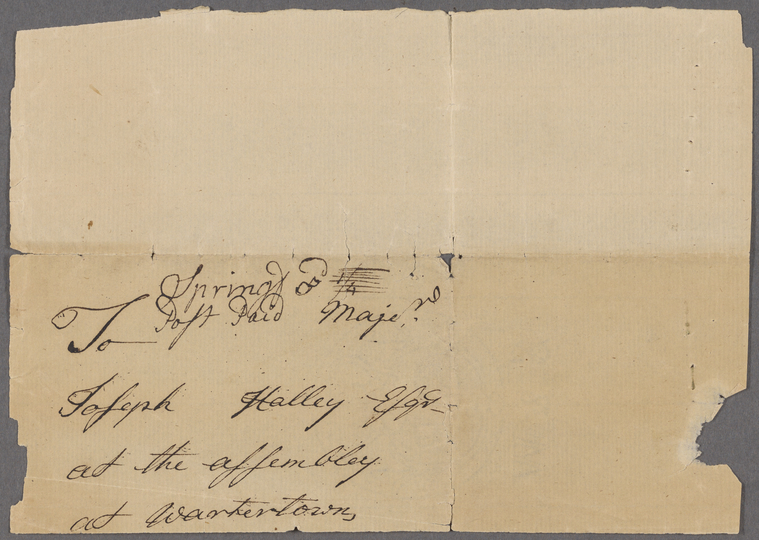 Springf
Post Paid Majer
To
Joseph Halley Esqr
at the assembley
at Wartertown